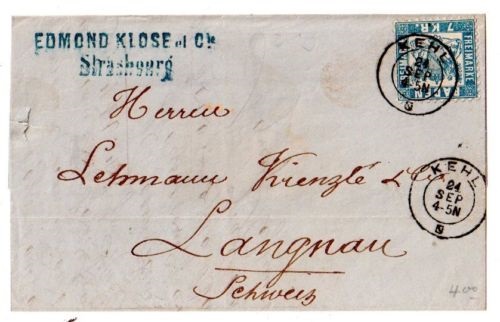 EDMOND KLOSE et Cie
Strasbourg
7 KR.
FREIMARKE
BADEN
KEHL
24
SEP
4-5N
Herren
Lehmann Krienzlé &
Langnau
Schweiz
KEHL
24
SEP
4-5N
4.00